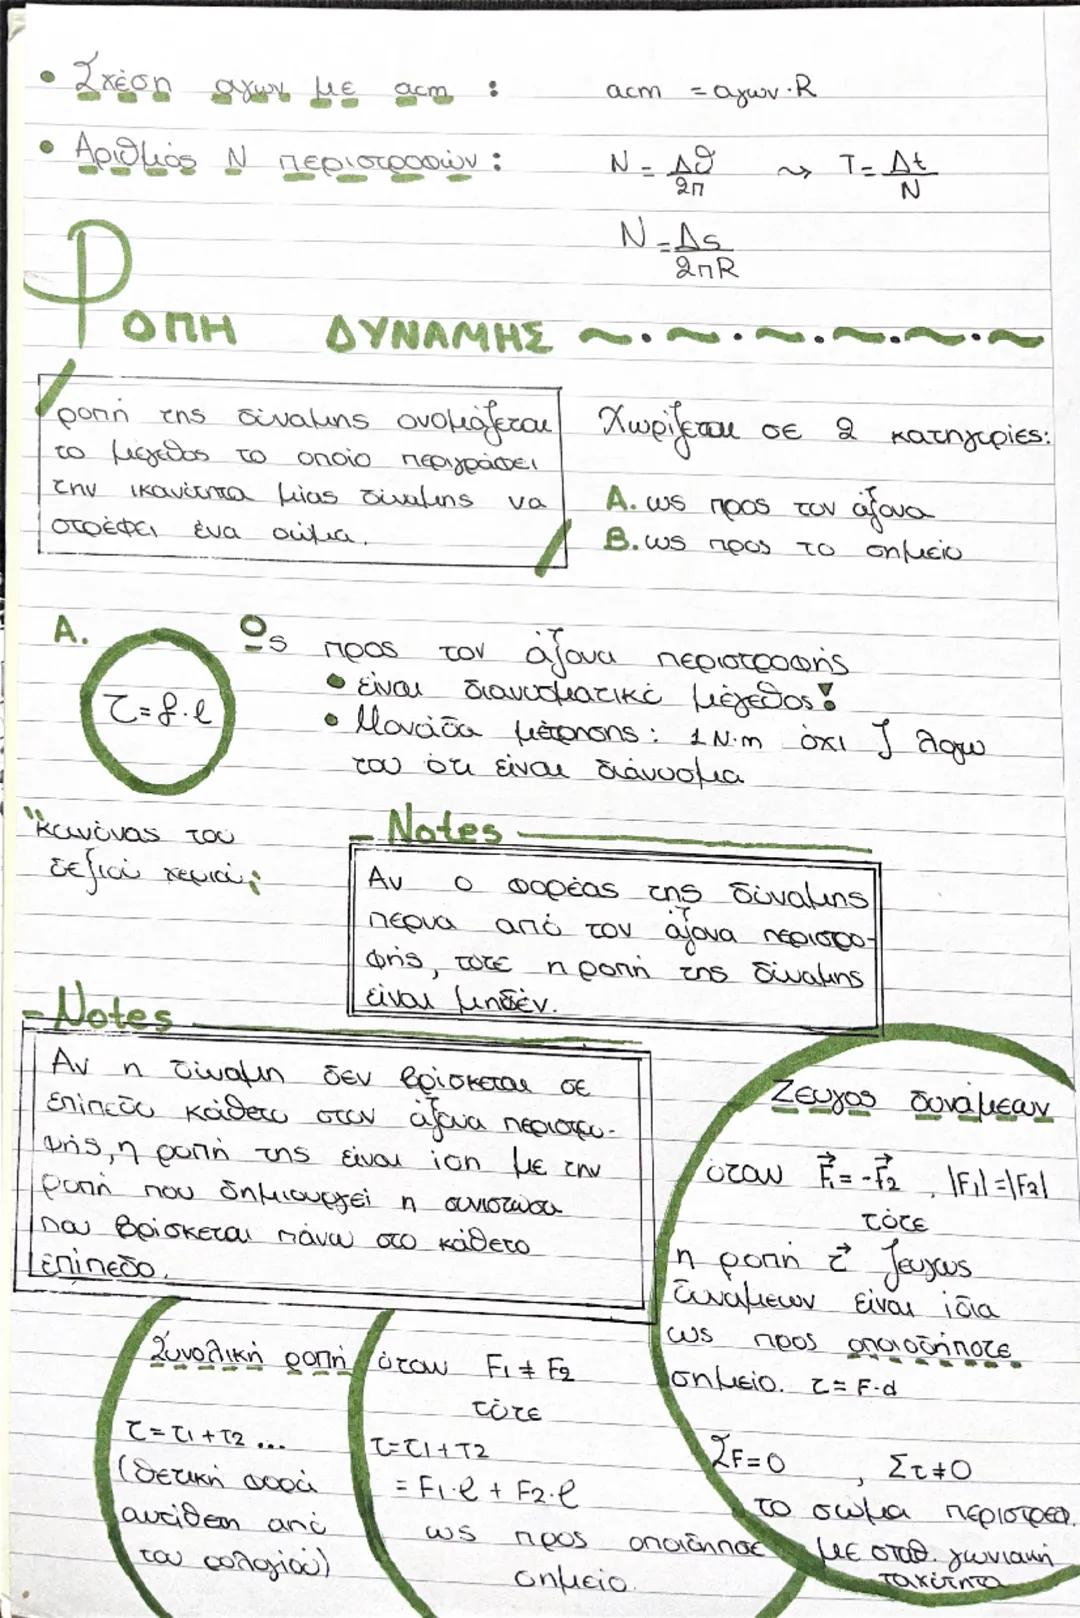 • Σχέση αγων με acm : acm = αγων·R
• Αριθμός Ν περιστροφών : N = Δθ/2π ⇝ T = Δt/N
N = Δs/2πR
ΡΟΠΗ ΔΥΝΑΜΗΣ
ροπή της δύναμης ονομάζεται
το μέγεθος το οποίο περιγράφει
την ικανότητα μίας δύναμης να
στρέφει ένα σώμα.
Χωρίζεται σε 2 κατηγορίες:
Α. ως προς τον άξονα
Β. ως προς το σημείο
Α.
τ = f·l
Ως προς τον άξονα περιστροφής
• είναι διανυσματικό μέγεθος!
• Μονάδα μέτρησης : 1 N·m όχι J λόγω
του ότι είναι διάνυσμα
"κανόνας του
δεξιού χεριού;
- Notes
Αν ο φορέας της δύναμης
περνα από τον άξονα περιστρο-
φής, τότε η ροπή της δύναμης
είναι μηδέν.
- Notes
Αν η δύναμη δεν βρίσκεται σε
επίπεδο κάθετο στον άξονα περιστρο-
φής, η ροπή της είναι ίση με την
ροπή που δημιουργεί η συνιστώσα
που βρίσκεται πάνω στο κάθετο
επίπεδο.
Ζεύγος δυνάμεων
όταν F⃗1 = -F⃗2 , |F1| = |F2|
τότε
η ροπή τ⃗ ζεύγους
δυνάμεων είναι ίδια
ως προς οποιοδήποτε
σημείο. τ = F·d
ΣF=0 , Στ≠0
το σώμα περιστρέφ.
με σταθ. γωνιακή
ταχύτητα
Συνολική ροπή
τ = τ1 + τ2 ...
(θετική φορά
αντίθετη από
του ρολογιού)
όταν F1 ≠ F2
τότε
τ = τ1 + τ2
= F1·l + F2·l
ως προς
σημείο.